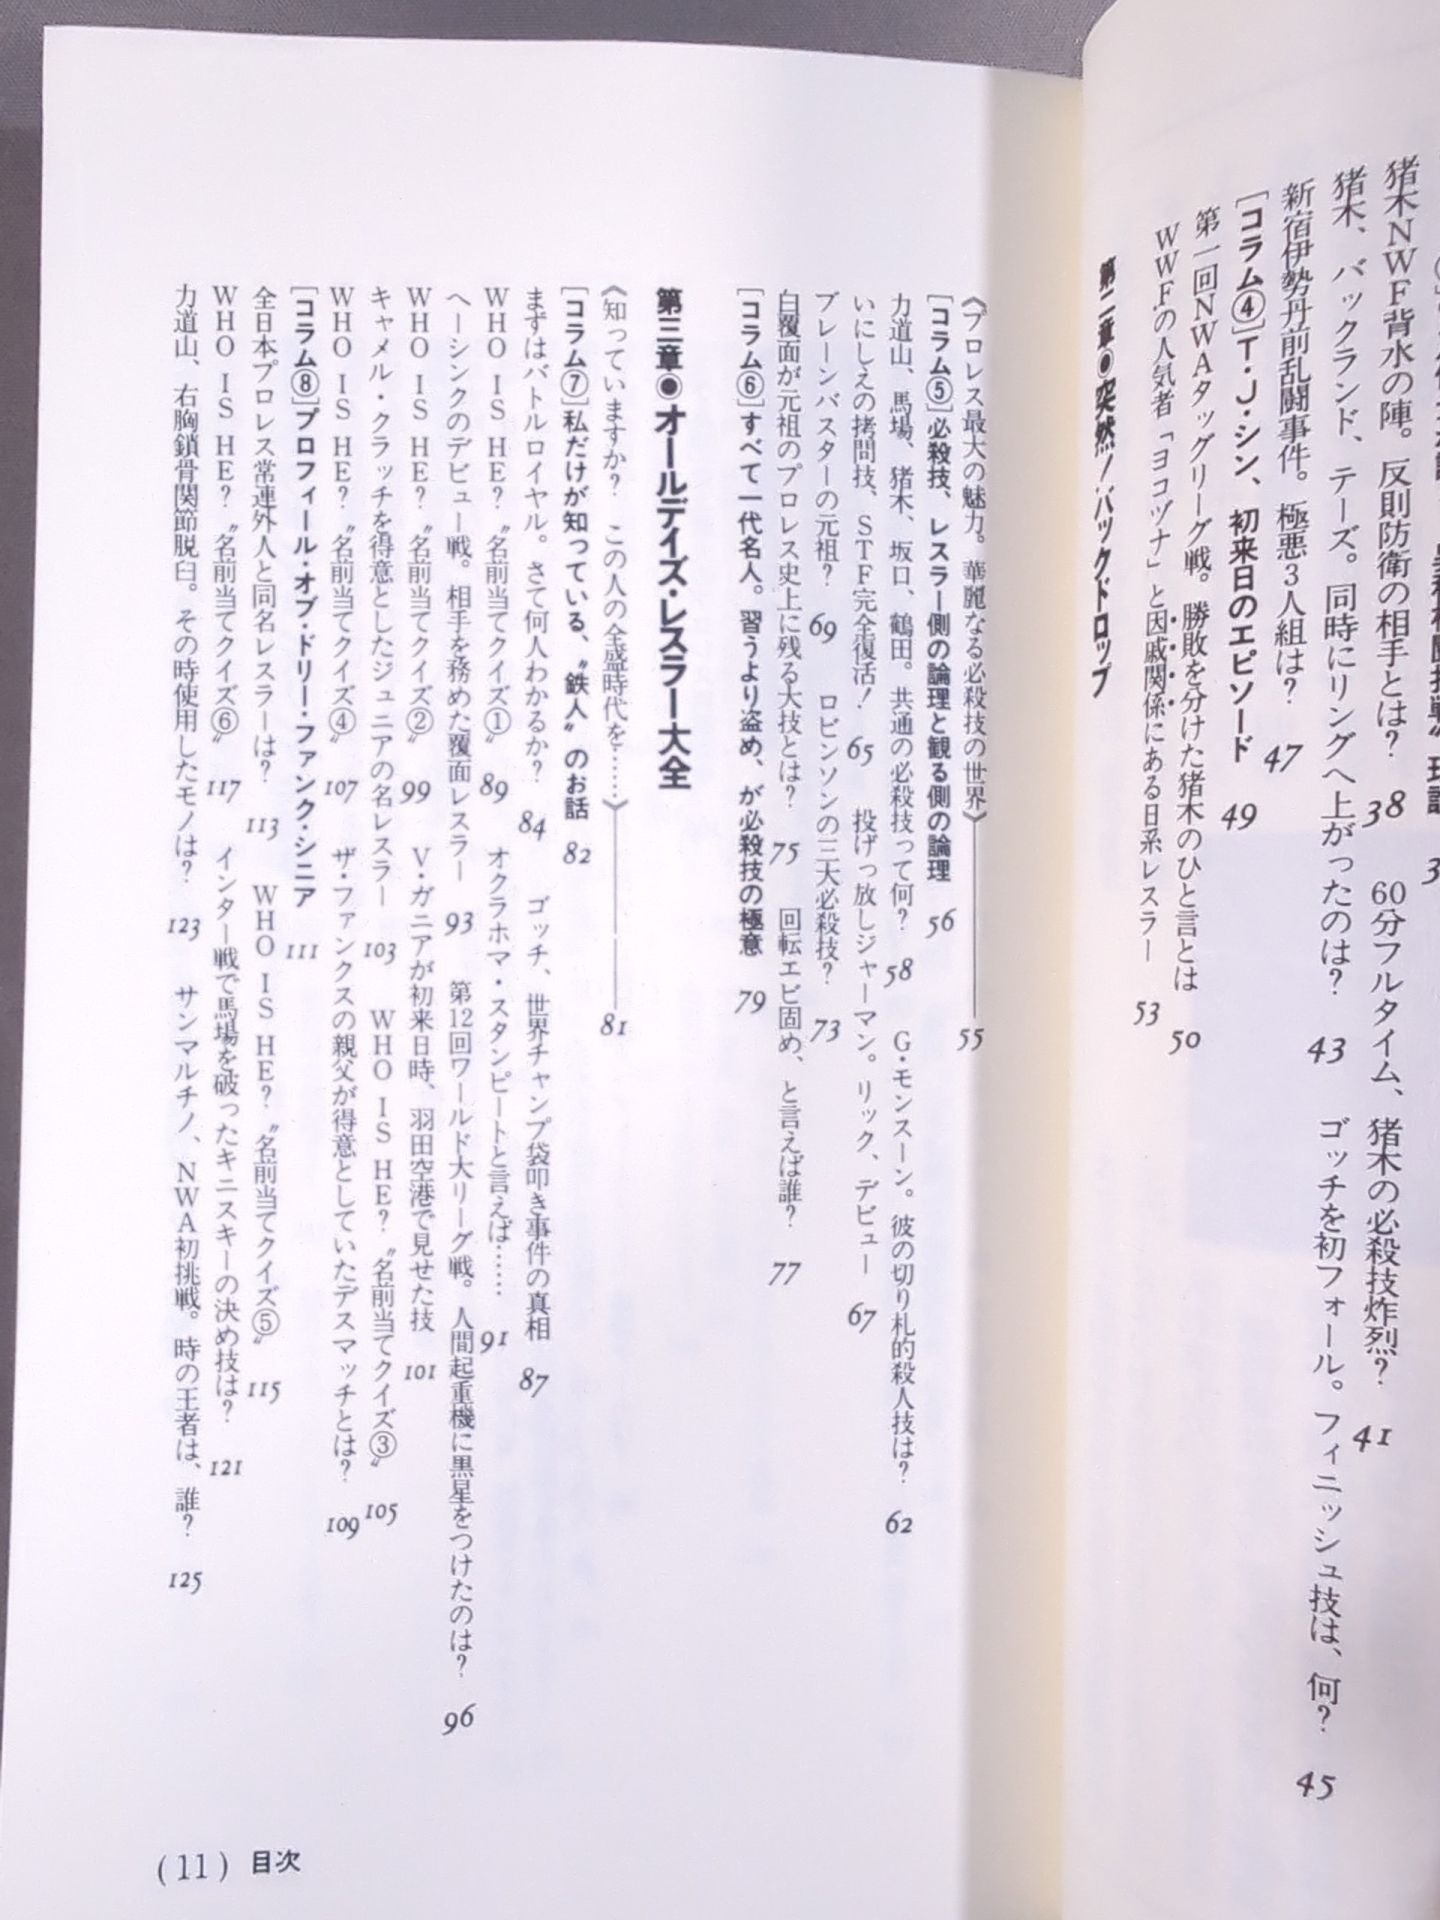 猪木NWF背水の陣。反則防衛の相手とは? 38 60分フルタイム、猪木の必殺技炸烈? 41
猪木、バックランド、テーズ。同時にリングへ上がったのは? 43 ゴッチを初フォール。フィニッシュ技は、何? 45
新宿伊勢丹前乱闘事件。極悪3人組は? 47
[コラム④]T・J・シン、初来日のエピソード 49
第一回NWAタッグリーグ戦。勝敗を分けた猪木のひと言とは 50
WWFの人気者「ヨコヅナ」と因戚関係にある日系レスラー 53
第二章●突然!バックドロップ
《プロレス最大の魅力。華麗なる必殺技の世界》 55
[コラム⑤]必殺技、レスラー側の論理と観る側の論理 56
力道山、馬場、猪木、坂口、鶴田。共通の必殺技って何? 58 G・モンスーン。彼の切り札的殺人技は? 62
いにしえの拷問技、STF完全復活! 65 投げっ放しジャーマン。リック、デビュー 67
ブレーンバスターの元祖? 69 ロビンソンの三大必殺技? 73
白覆面が元祖のプロレス史上に残る大技とは? 75 回転エビ固め、と言えば誰? 77
[コラム⑥]すべて一代名人。習うより盗め、が必殺技の極意 79
第三章●オールデイズ・レスラー大全
《知っていますか? この人の全盛時代を……》 81
[コラム⑦]私だけが知っている、〝鉄人〟のお話 82
まずはバトルロイヤル。さて何人わかるか? 84 ゴッチ、世界チャンプ袋叩き事件の真相 87
WHO IS HE?〝名前当てクイズ①〟 89 オクラホマ・スタンピートと言えば…… 91
ヘーシンクのデビュー戦。相手を務めた覆面レスラー 93 第12回ワールド大リーグ戦。人間起重機に黒星をつけたのは? 96
WHO IS HE?〝名前当てクイズ②〟 99 V・ガニアが初来日時、羽田空港で見せた技 101
キャメル・クラッチを得意としたジュニアの名レスラー 103 WHO IS HE?〝名前当てクイズ③〟 105
WHO IS HE?〝名前当てクイズ④〟 107 ザ・ファンクスの親父が得意としていたデスマッチとは? 109
[コラム⑧]プロフィール・オブ・ドリー・ファンク・シニア 111
全日本プロレス常連外人と同名レスラーは? 113 WHO IS HE?〝名前当てクイズ⑤〟 115
WHO IS HE?〝名前当てクイズ⑥〟 117 インター戦で馬場を破ったキニスキーの決め技は? 121
力道山、右胸鎖骨関節脱臼。その時使用したモノは? 123 サンマルチノ、NWA初挑戦。時の王者は、誰? 125
(11) 目次